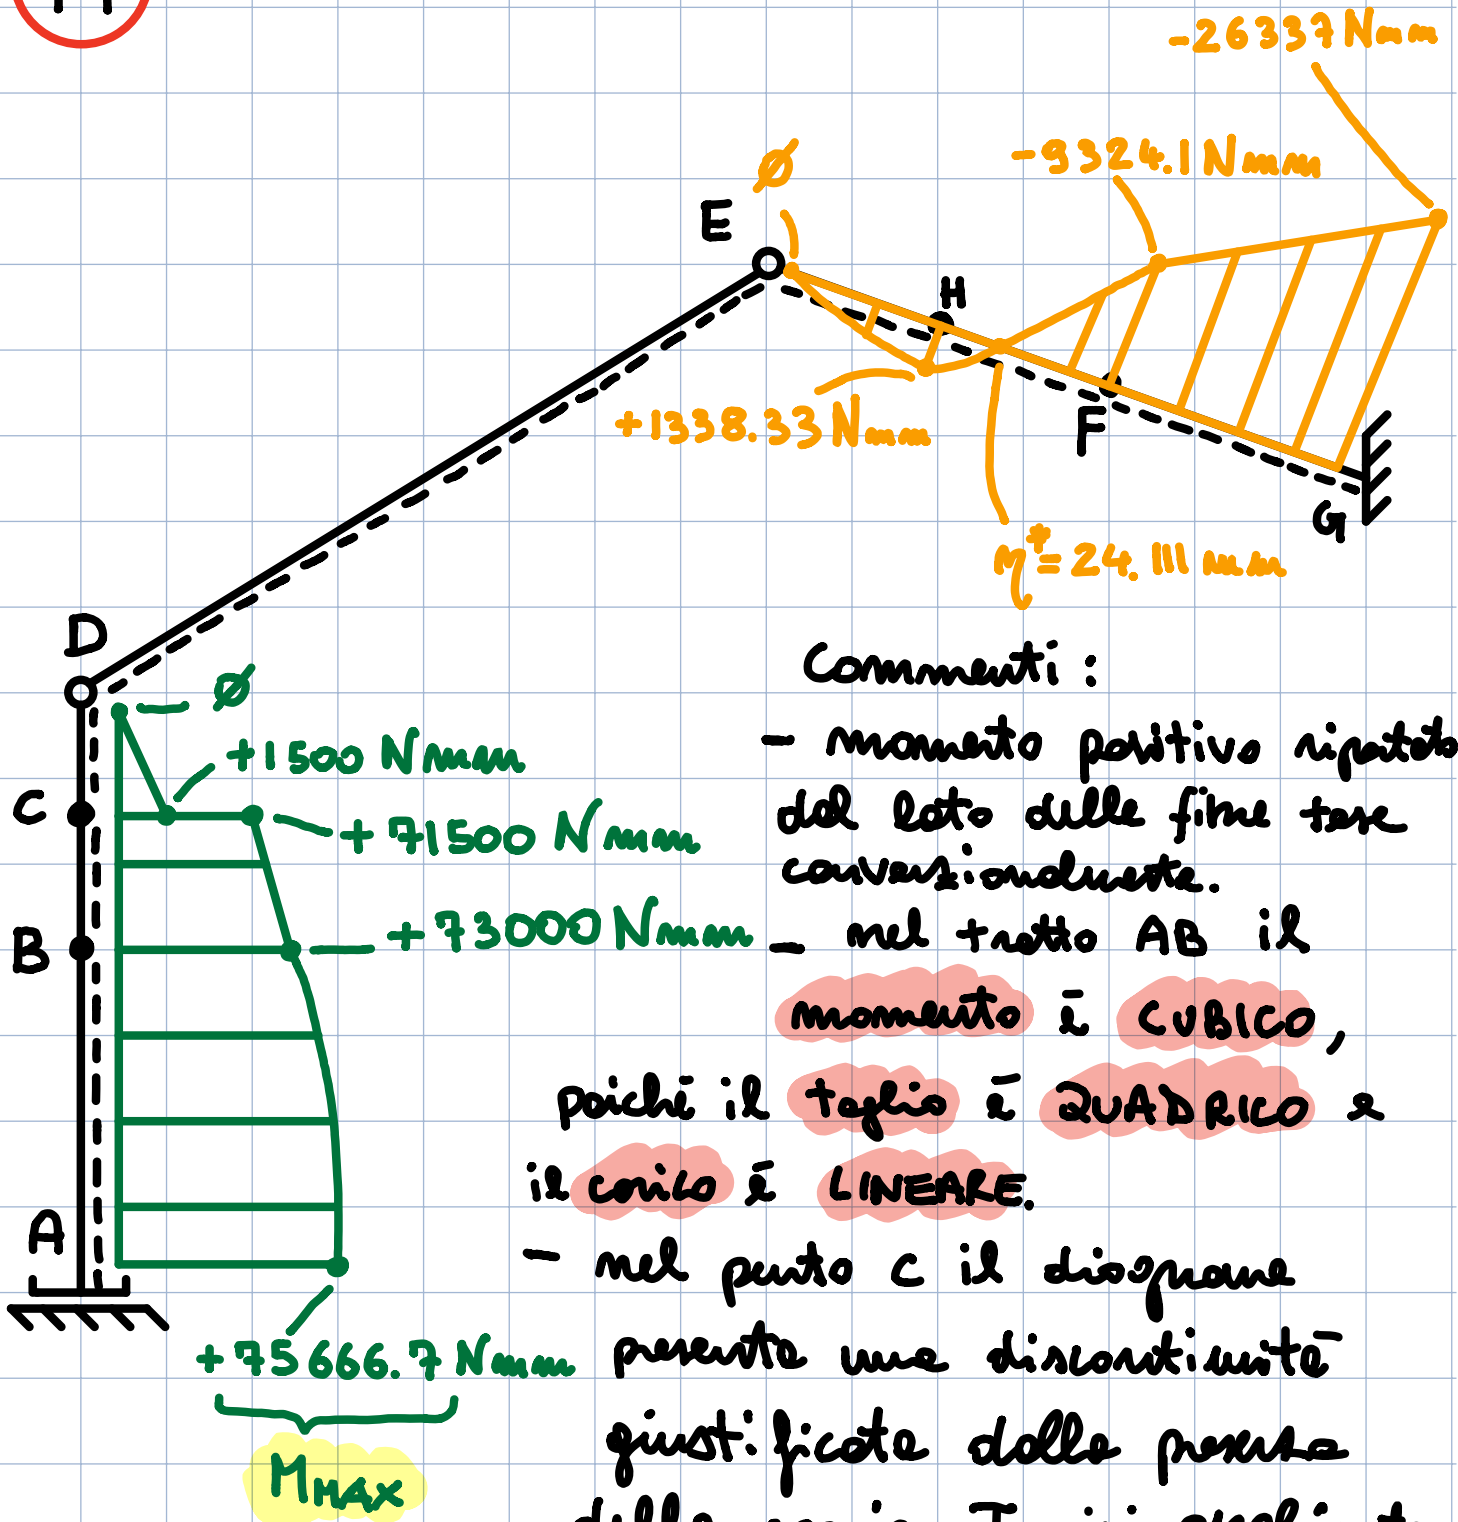 M
-26337 Nmm
-9324.1 Nmm
Ø
E
H
+1338.33 Nmm
F
G
η* = 24.111 mm
D
Ø
+1500 Nmm
C
+71500 Nmm
B
+73000 Nmm
A
+75666.7 Nmm
MMAX
Commenti:
- momento positivo riportato
dal lato delle fibre tese
convenzionalmente.
- nel tratto AB il
momento è CUBICO,
poiché il taglio è QUADRICO e
il carico è LINEARE.
- nel punto C il diagramma
presenta una discontinuità
giustificata dalla presenza